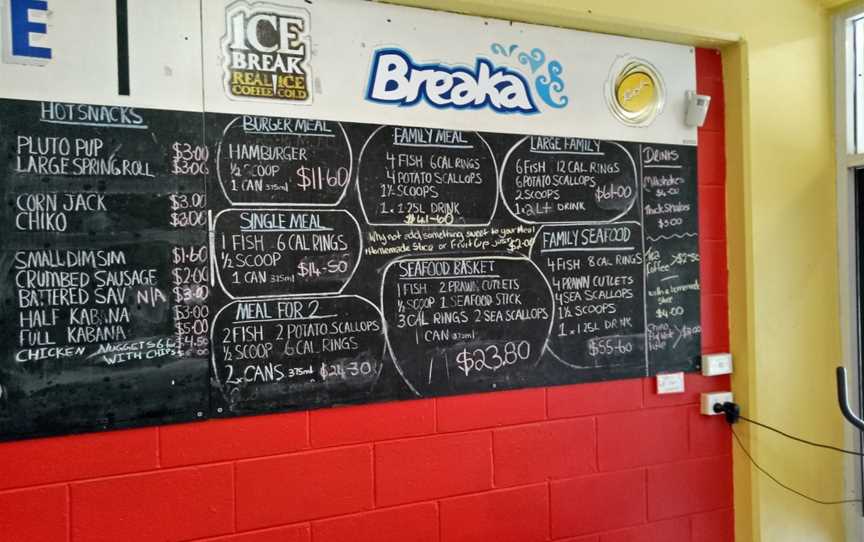 E
ICE
BREAK
REAL ICE
COFFEE COLD
Breaka
HOT SNACKS
PLUTO PUP $3.00
LARGE SPRING ROLL $3.00
CORN JACK $3.00
CHIKO $3.00
SMALL DIM SIM $1.60
CRUMBED SAUSAGE $2.00
BATTERED SAV N/A $3.00
HALF KABANA $3.00
FULL KABANA $5.00
CHICKEN NUGGETS 6
WITH CHIPS
BURGER MEAL
HAMBURGER
½ SCOOP
1 CAN 375ml $11.60
SINGLE MEAL
1 FISH 6 CAL RINGS
½ SCOOP
1 CAN 375ml $14.50
MEAL FOR 2
2 FISH 2 POTATO SCALLOPS
½ SCOOP 6 CAL RINGS
2 x CANS 375ml $24.30
FAMILY MEAL
4 FISH 6 CAL RINGS
4 POTATO SCALLOPS
1½ SCOOPS
1 x 1.25L DRINK
$41.60
Why not add something sweet to your Meal
Homemade Slice or Fruit Cup Just $2.00
SEAFOOD BASKET
1 FISH 2 PRAWN CUTLETS
½ SCOOP 1 SEAFOOD STICK
3 CAL RINGS 2 SEA SCALLOPS
1 CAN 375ml
$23.80
LARGE FAMILY
6 FISH 12 CAL RINGS
6 POTATO SCALLOPS
2 SCOOPS $61.00
1 x 2L DRINK
FAMILY SEAFOOD
4 FISH 8 CAL RINGS
4 PRAWN CUTLETS
4 SEA SCALLOPS
1½ SCOOPS
1 x 1.25L DRINK
$55.60
DRINKS
Milkshakes
Thick Shakes
$5.00
Tea
Coffee $2.50
with a homemade
Slice
$4.00